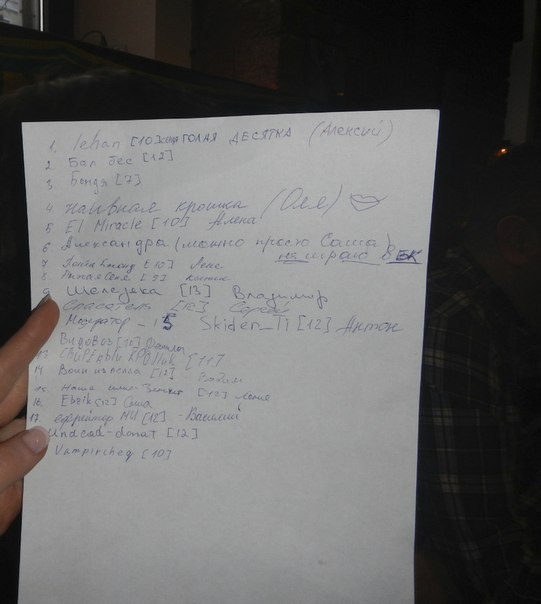 1. lehan [10] ГОЛАЯ ДЕСЯТКА (Алексий)
2 Бал бес [12]
3. Бондя [7]
4 наивная крошка (Оля)
5. El Miracle [10] Алена
6. Александра (можно просто Саша)
не играю в БК
7 [10]
8 [9]
9. Железяка [13] Владимир
Спасатель [12] Сергей
Модератор - 15 Skiden_TI [12] Антон
Видовоз [10]
13 [11]
14 Воин из пепла [12] Вадим
15. Наше [12]
16. Ebzik [12] Саша
17. ефрейтор МЦ [12] - Василий
Undead-donat [12]
Vampircheg [10]